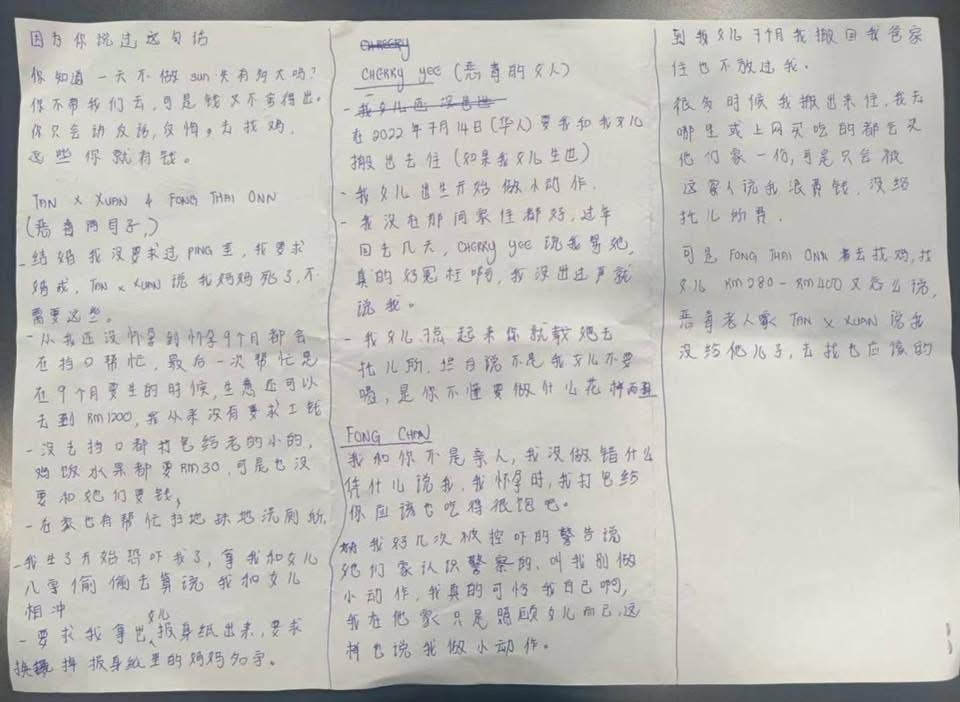 因为你说过这句话
你知道 一天不做 sun 失有多大吗?
你不带我们去,可是钱又不舍得出。
你只会动反话,仅怕。去找鸡,
这些你就有钱。
TAN X XUAN & FONG THAI ONN
(恶毒两母子,)
- 结婚我没要求过 PING 金,我要求
妈戒,TAN X XUAN 说我妈妈死了,不
需要这些。
- 从我还没怀孕到怀孕9个月都会
在挡口帮忙,最后一次帮忙是
在9个月要生的时候,生意还可以
去到 RM1200,我从来没有要求工钱
- 没去挡口都打包给老的小的,
鸡饭水果都要RM30,可是也没
要和她们要钱,
- 在家也有帮忙扫地抹地洗厕所,
- 我生了开始恐吓我了,拿我和女儿
八字偷偷去算说我和女儿
相冲
- 要求我拿出女儿报身纸出来,要求
换掉报身纸里的妈妈名字。
CHERRY YEE (恶毒的女人)
在2022年7月14日(华人)要我和我女儿
搬出去住(如果我女儿生出)
- 我女儿出生开始做小动作.
- 我没在那间家住都好,过年
回去几天,CHERRY YEE 说我骂她,
真的好冤枉啊,我没出过声就
说我。
- 我女儿 起来你就载她去
托儿所,坦白说不是我女儿不要
喝,是你不懂要做什么花样而已
FONG CHAN
我和你不是亲人,我没做错什么
凭什么说我,我怀孕时,我打包给
你应该也吃得很饱吧。
我好几次被恐吓的警告说
她们家认识警察的,叫我别做
小动作,我真的可怜我自己啊,
我在他家只是照顾女儿而已,这
样也说我做小动作。
到我女儿7个月我搬回我爸家
住也不放过我。
很多时候我搬出来住,我去
哪里或上网买吃的都会买
他们家一份,可是只会被
这家人说我浪费钱,没给
托儿所费.
可是 FONG THAI ONN 去找鸡,找
女儿 RM280-RM400又怎么说,
恶毒老人家 TAN X XUAN 说我
没给他儿子,去找也应该的